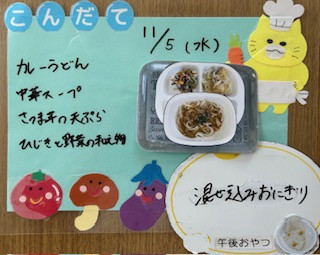 こんだて
11/5(水)
カレーうどん
中華スープ
さつま芋の天ぷら
ひじきと野菜の和え物
混ぜ込みおにぎり
午後おやつ